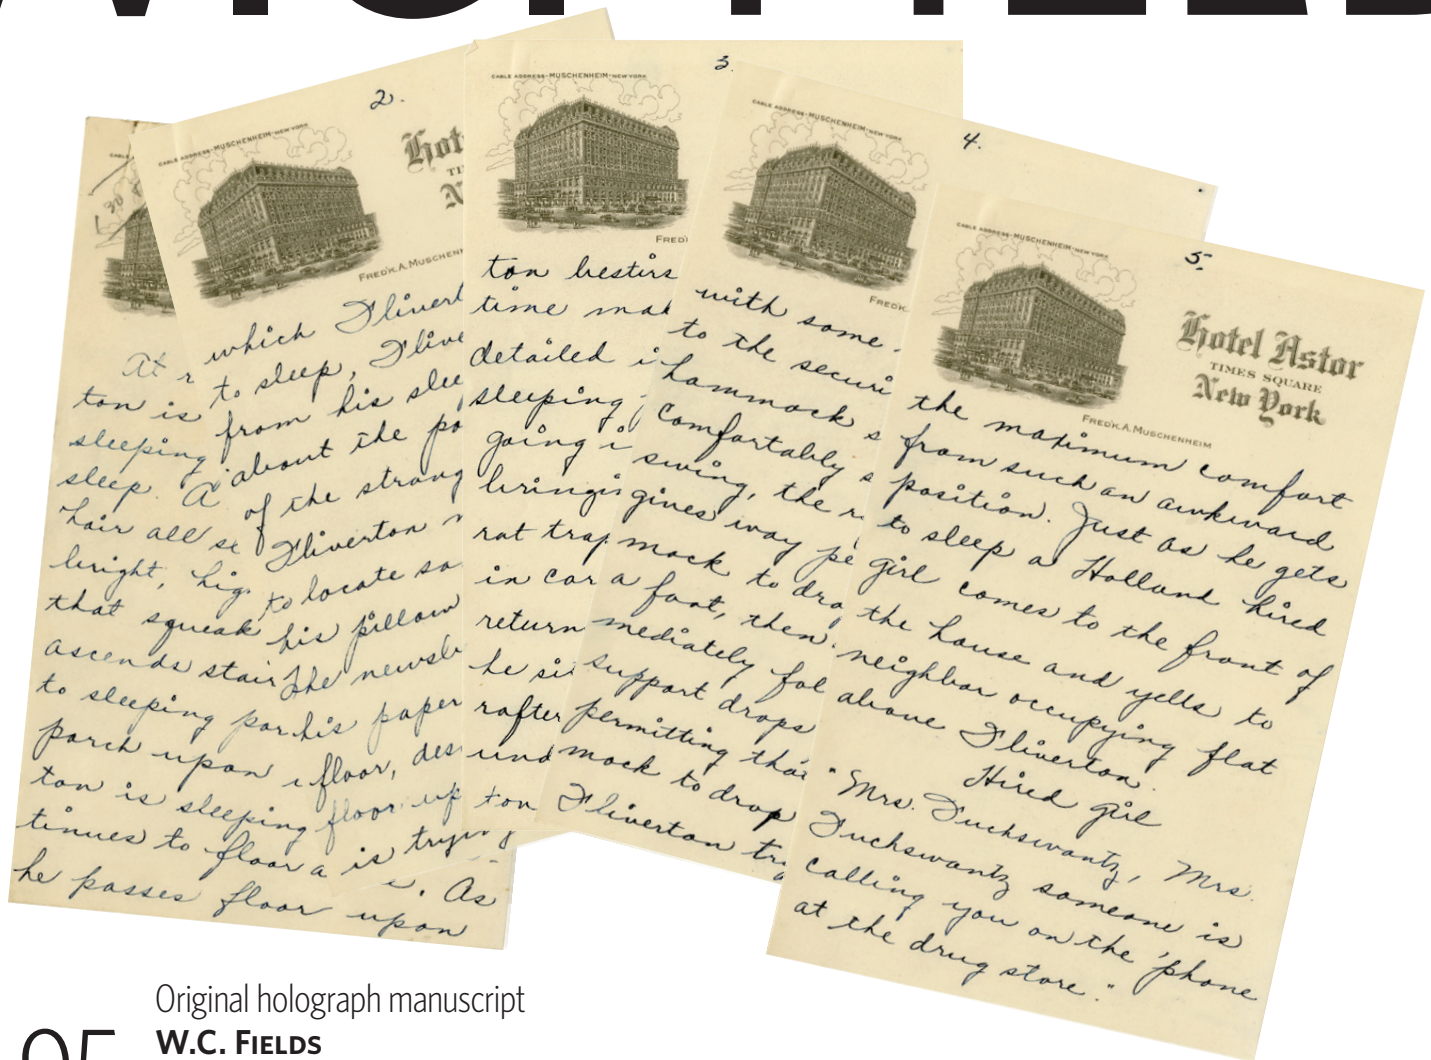 CABLE
30
At
ton is
sleeping
sleep. A
hair all
bright, hig
that squeak
ascends stair
to sleeping por
porch upon
ton is sleeping
tinues to floor a
he passes floor upon
2.
CABLE ADDRESS-MUSCHENHEIM-NEW YORK
Hot
TI
N
FRED'K. A. MUSCHEN
which Fliver
to sleep, Flive
from his slee
about the po
of the strang
Fliverton
to locate so
his pillow
The newsb
his paper
floor, des
floor up
is tryin
. As
3.
CABLE ADDRESS-MUSCHENHEIM-NEW YORK
FRED'
ton bestirs
time ma
detailed i
sleeping
going i
bringi
rat trap
in car
return
he si
rafter
und
ton
4.
CABLE ADDRESS-MUSCHENHEIM-NEW YORK
FRED'K.
with some
to the securi
hammock s
comfortably s
swing, the r
gives way pe
mock to dro
a foot, then
mediately fol
support drops
permitting tha
mock to drop
Fliverton try
5.
CABLE ADDRESS-MUSCHENHEIM-NEW YORK
Hotel Astor
TIMES SQUARE
New York
FRED'K. A. MUSCHENHEIM
the maximum comfort
from such an awkward
position. Just as he gets
to sleep a Holland hired
girl comes to the front of
the house and yells to
neighbor occupying flat
above Fliverton.
Hired girl
"Mrs. Fuchswantz, Mrs.
Fuchswantz someone is
calling you on the 'phone
at the drug store."
Original holograph manuscript
W.C. FIELDS